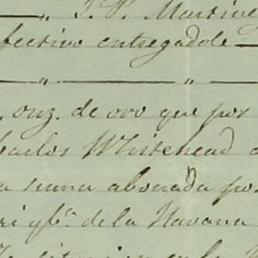 " J. P. Martine
fectivo entregadole
" "
, onz. de oro que por
Carlos Whitehead
a suma abonada por
ri yba. de la Havana